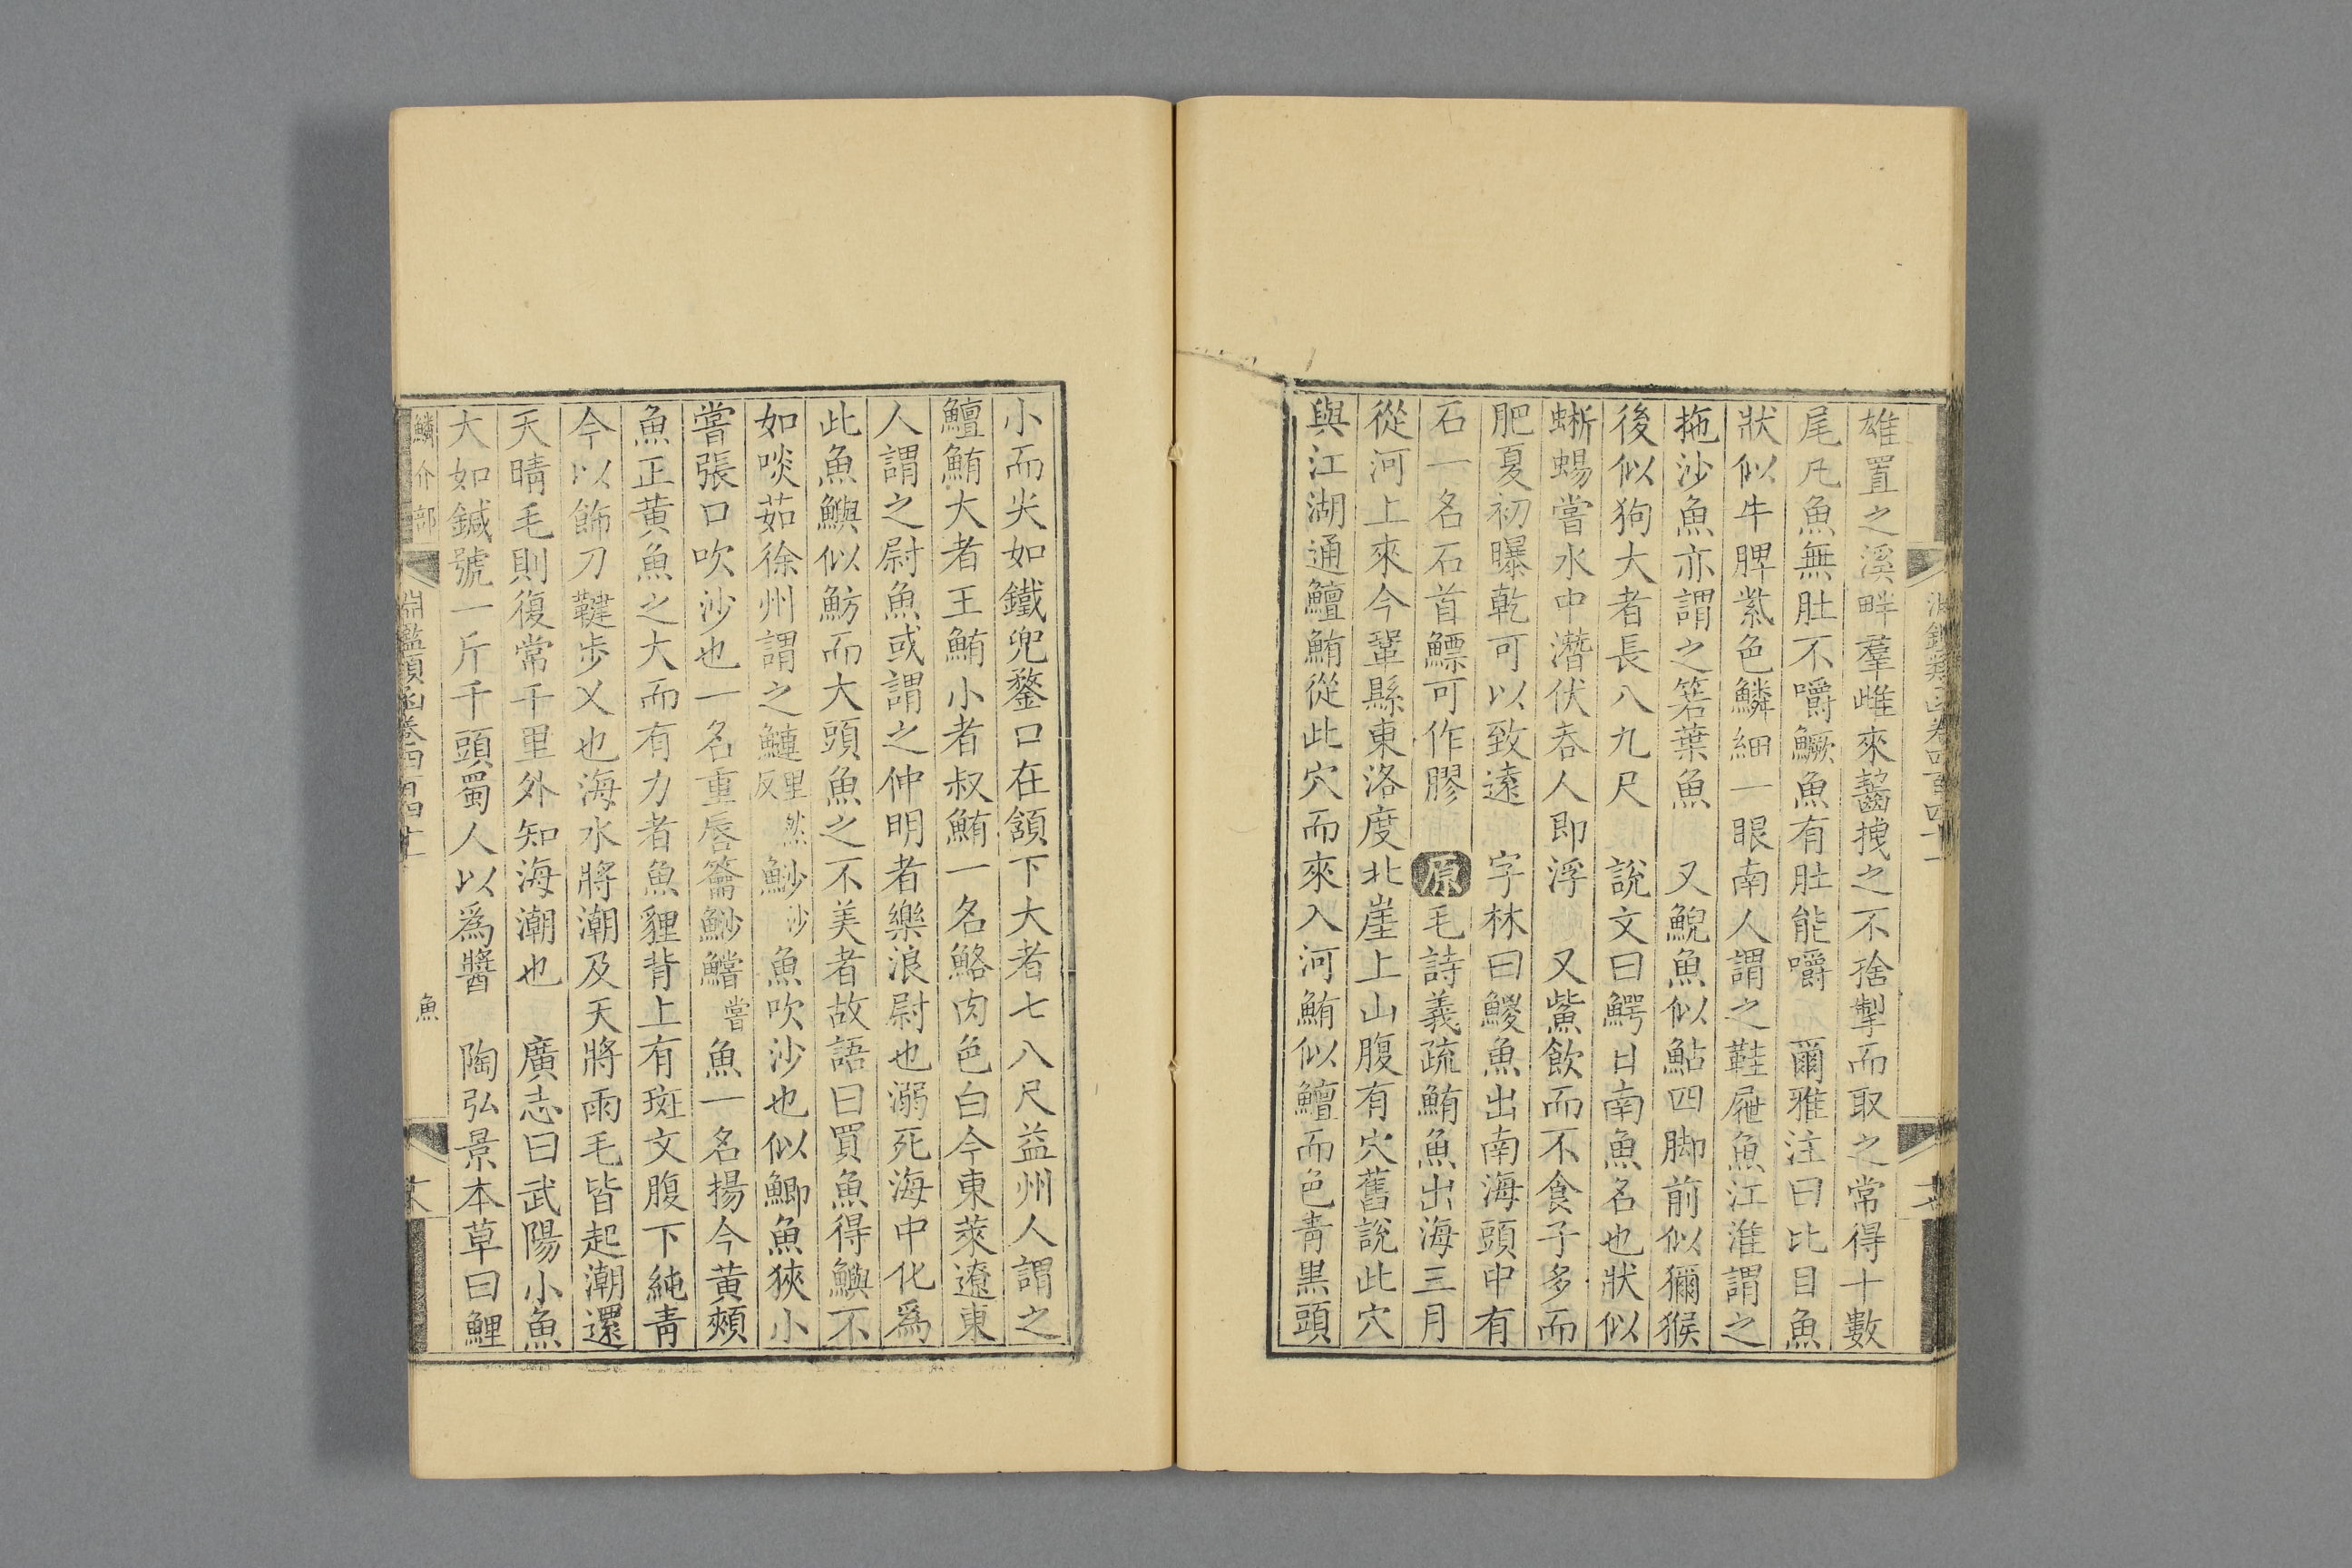 雄置之溪畔羣雌來齧拽之不捨掣而取之常得十數
尾凡魚無肚不嚼鱖魚有肚能嚼　爾雅注曰比目魚
狀似牛脾紫色鱗細一眼南人謂之鞋屜魚江淮謂之
拖沙魚亦謂之箬葉魚　又鯢魚似鮎四脚前似獼猴
後似狗大者長八九尺　說文曰鰐日南魚名也狀似
蜥蜴嘗水中潛伏吞人即浮　又鮆飲而不食子多而
肥夏初曝乾可以致遠　字林曰鯼魚出南海頭中有
石一名石首鰾可作膠　原毛詩義疏鮪魚出海三月
從河上來今鞏縣東洛度北崖上山腹有穴舊說此穴
與江湖通鱣鮪從此穴而來入河鮪似鱣而色青黑頭
小而尖如鐵兜鍪口在頷下大者七八尺益州人謂之
鱣鮪大者王鮪小者叔鮪一名鮥肉色白今東萊遼東
人謂之尉魚或謂之仲明者樂浪尉也溺死海中化爲
此魚鱮似魴而大頭魚之不美者故語曰買魚得鱮不
如啖茹徐州謂之鰱里然反魦沙魚吹沙也似鯽魚狹小
嘗張口吹沙也一名重唇籥魦鱨嘗魚一名揚今黄頰
魚正黄魚之大而有力者魚貍背上有斑文腹下純青
今以飾刀鞬步乂也海水將潮及天將雨毛皆起潮還
天晴毛則復常千里外知海潮也　廣志曰武陽小魚
大如鍼號一斤千頭蜀人以爲醬　陶弘景本草曰鯉
鱗介部
淵鑑類函卷四百四十一
魚